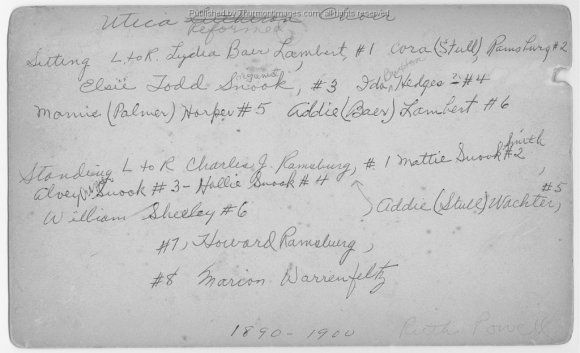 Published by Thurmontimages.com
Utica
Reformed
Sitting L. to R. Lydia Baer Lambert, #1 Cora (Stull) Ramsburg #2
Elsie Todd Snook, #3 Ida Hedges ? #4
Mamie (Palmer) Harper #5 Addie (Baer) Lambert #6
Standing L to R Charles J. Ramsburg, #1 Mattie Snook Smith #2,
Alvey Snook #3 - Hollie Snook #4
Addie (Stull) Wachter, #5
William Sheeley #6
#7, Howard Ramsburg,
#8 Marion Warrenfeltz
1890-1900 Ruth Powell